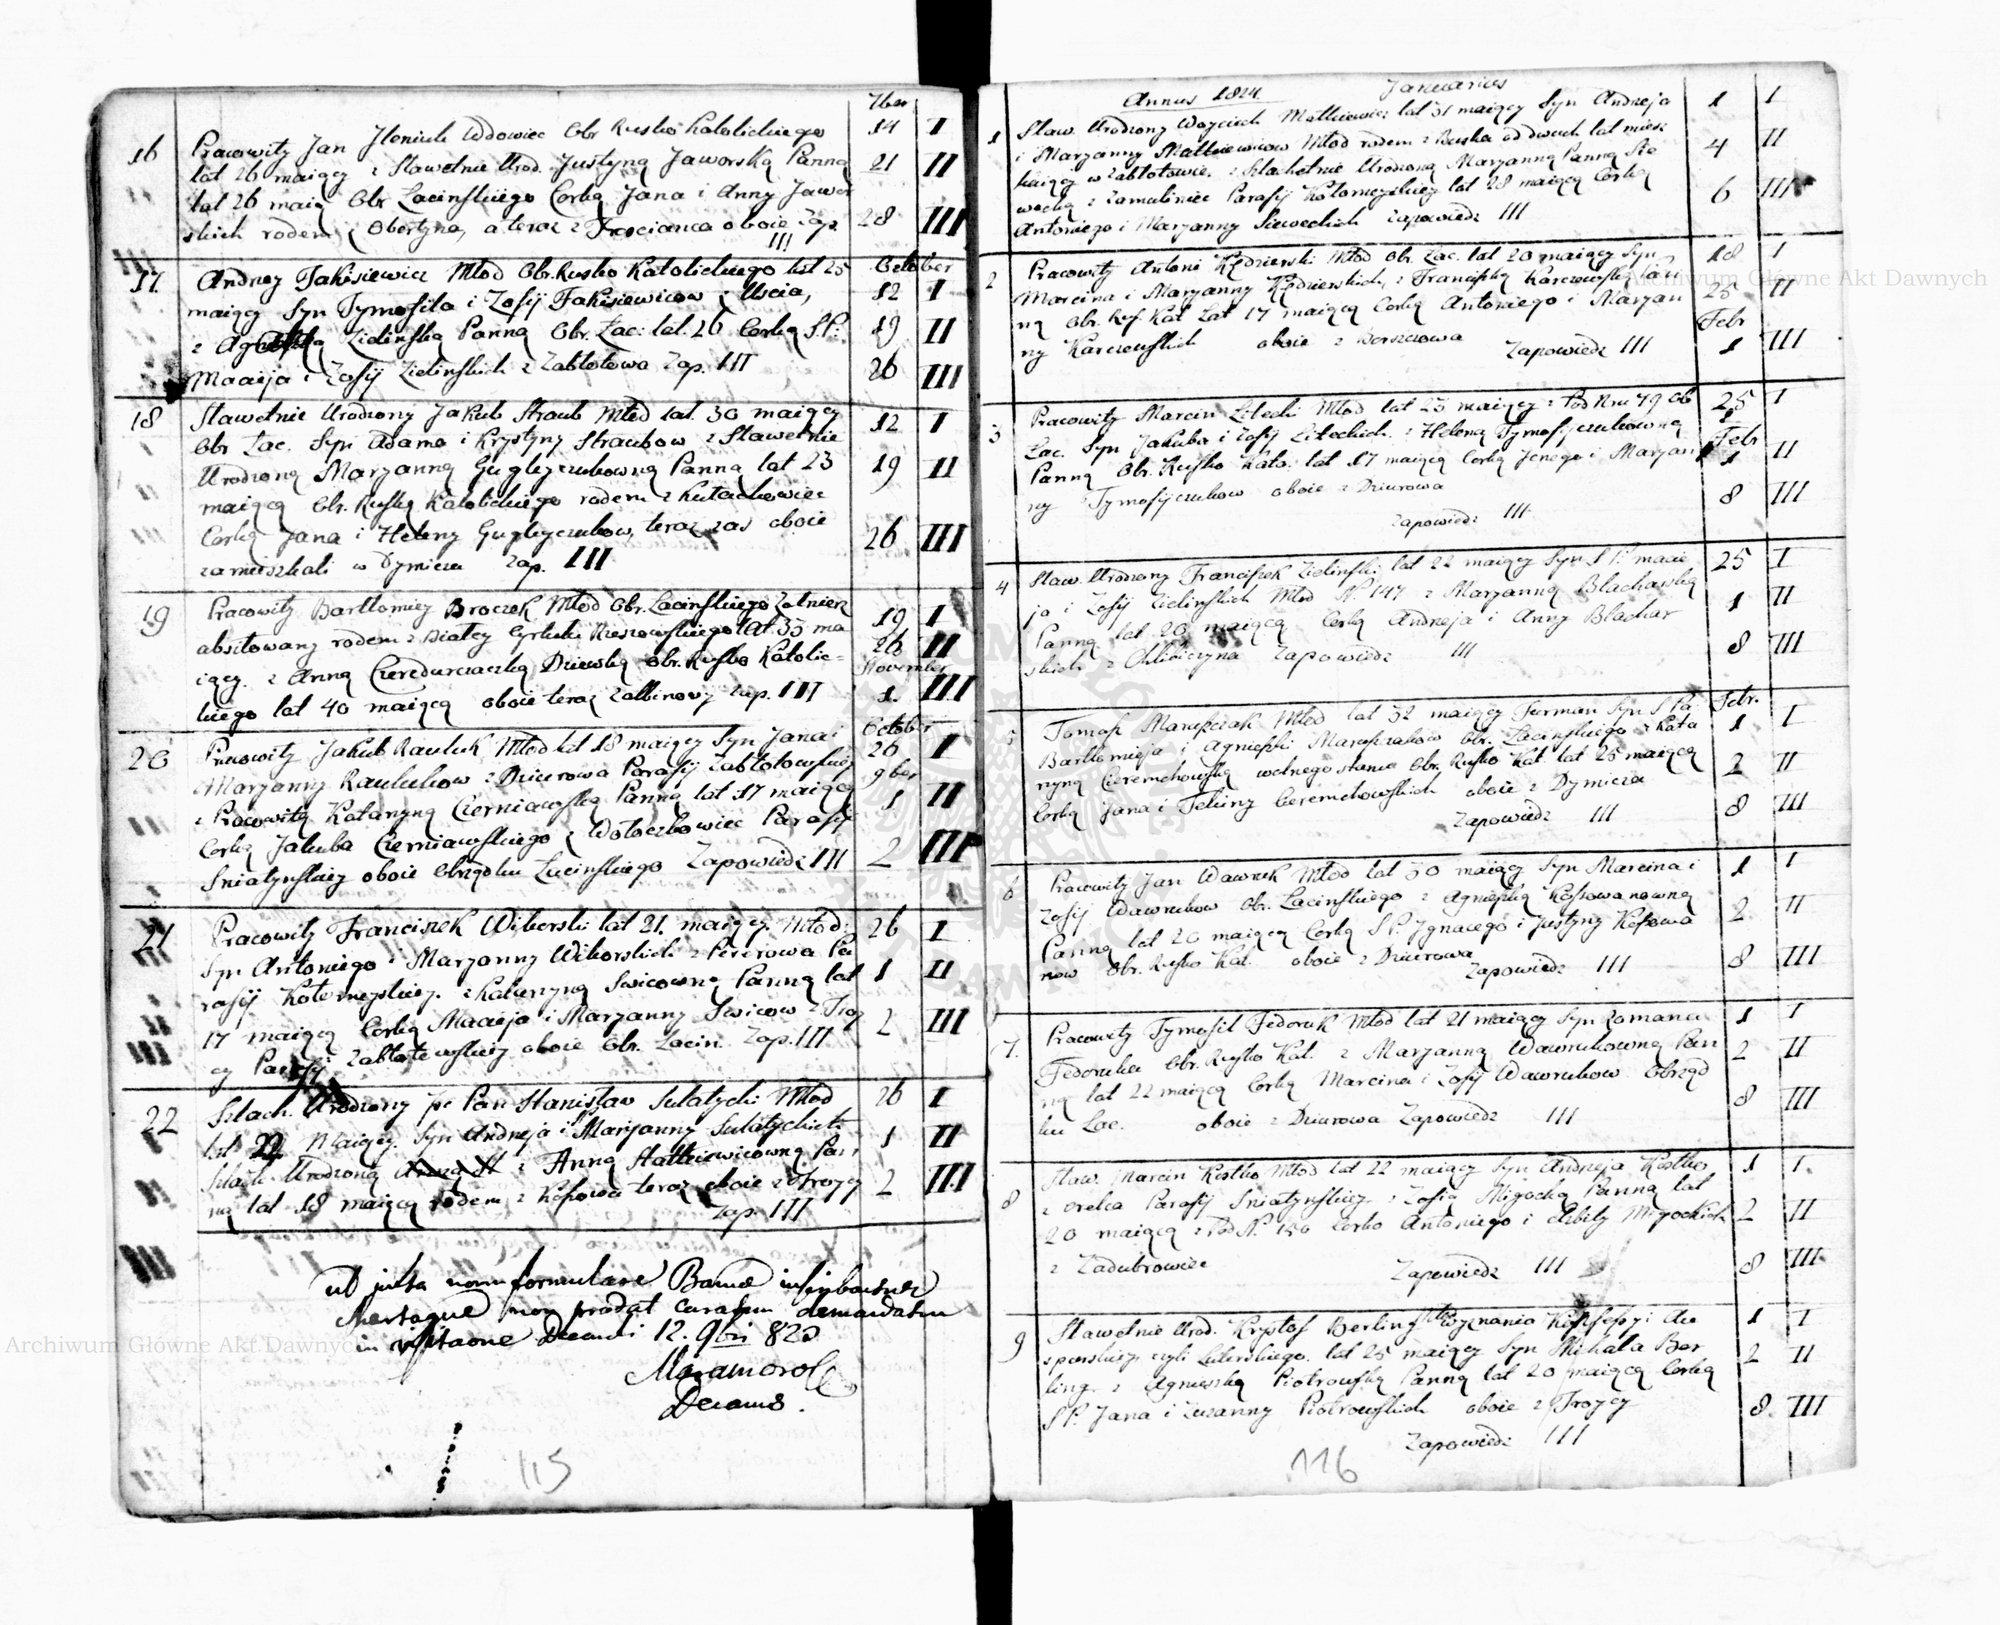 7ber
16 Pracowity Jan Ileniuk Wdowiec Obr Rusko Katolickiego 14 I
lat 26 maiący z Sławetnie Urod. Justyną Jaworską Panną 21 II
lat 26 maią Obr Łacinskiego Corką Jana i Anny Jawor
skich rodem z Obertyna, a teraz z Trościanca oboie Zap. 28 III
III
17 Andrzey Fakisiewicz Młod Obr. Rusko Katolickiego lat 25 October
maiący Syn Tymofiia i Zofij Fakisiewiczow z Uscia, 12 I
z Zielinską Panną Obr. Łac: lat 26 Corką SP: 19 II
Macieja i Zofij Zielinskich z Zabłotowa Zap. III 26 III
18 Sławetnie Urodzony Jakub Straub Młod lat 30 maiący 12 I
Obr Łac. Syn Adama i Krystyny Straubow z Sławetnie
Urodzoną Maryanną Guglyczukowną Panną lat 23 19 II
maiącą Obr. Rusko Katolickiego rodem z
Corką Jana i Heleny Guglyczukow, teraz zas oboie 26 III
zamieszkali w Dymiczu Zap. III
19 Pracowity Bartłomiey Broczek Młod Obr. Łacinskiego Zołnierz 19 I
absztowany rodem z Białey Cyrkułu Rzeszowskiego lat 35 ma 26 II
iący. z Anną Czeredarczaczką Dziewką obr. Rusko Katolic= November
kiego lat 40 maiącą oboie teraz Zap. III 1. III
October
20 Pracowity Jakub Rauluk Młod lat 18 maiący Syn Jana i 26 I
Maryanny Raulukow z Dziurowa Parafij Zabłotowskiey 9ber
z Pracowitą Katarzyną Czerniawską Panną lat 17 maiącą 1 II
Corką Jakuba Czerniawskiego z Wołoczkowiec Parafij
Sniatynskiey oboie Obrządku Łacinskiego Zapowiedz III 2 III
21 Pracowity Franciszek Wiberski lat 21. maiący. Młod: 26 I
Syn Antoniego i Maryanny Wiborskich z Pererowa Pa
rafij Kołomyskiey. z Katarzyną Swicowną Panną lat 1 II
17 maiącą Corką Macieja i Maryanny Swicow z Troy
cy Parafij Zabłotowskiey oboie Obr. Łacin. Zap. III 2 III
22 Szlach. Urodzony Pan Stanisław Sulatycki Młod 26 I
lat 22 Maiący. Syn Andrzeja i Maryanny Sulatyckich 1 II
Szlach. Urodzoną z Anną Hatkiewiczowną Pan
ną lat 18 maiącą rodem z Kossowa teraz oboie z Troycy 2 III
Zap. III
ut juxta norm formulare
non prodat curatum
in visitaone Decanali 12. 9bri 823
Decanus.
115
Annus 1824. Januarius
1 Sław. Urodzony Woyciech Matkiewicz lat 31 maiący Syn Andrzeja 1 I
i Maryanny Matkiewiczow Młod rodem z Buska od dwuch lat miesz 4 II
kaiący w Zabłotowie. z Szlachetnie Urodzoną Maryanną Panną Sie
wecką z Zamuliniec Parafij Kołomyskiey lat 28 maiącą Corką 6 III
Antoniego i Maryanny Siweckich Zapowiedz III
2 Pracowity Antoni Kędzierski Młod Obr. Łac. lat 20 maiący Syn 18 I
Marcina i Maryanny Kędzierskich, z Franciszką Karczewską Pan 25 II
ną Obr. Rus. Kat Lat 17 maiącą Corką Antoniego i Maryan Febr
ny Karczewskich oboie z Borszczowa Zapowiedz III 1 III
3 Pracowity Marcin Litecki Młod lat 23 maiący z Pod Nru 79 Ob 25 I
Łac. Syn Jakuba i Zofij Liteckich. z Heleną Tymofijczukowną Febr
Panną Obr. Rusko Kato: lat 17 maiącą Corką Jenego i Maryan 1 II
ny Tymofijczukow oboie z Dziurowa 8 III
Zapowiedz III
4 Sław. Urodzony Franciszek Zielinski lat 22 maiący Syn SP: Macie 25 I
ja i Zofij Zielinskich Młod N. 147 z Maryanną Blacharską 1 II
Panną lat 20 maiącą Corką Andrzeja i Anny Blachar
skich z Chlibiczyna Zapowiedz III 8 III
5 Tomasz Maruszczak Młod lat 32 maiący Furman Syn S Pa. Febr.
Bartłomieja i Agnieszki Maruszczakow Obr. Łacinskiego z Kata 1 I
rzyną Czeremchowską wolnego stanu Obr. Rusko Kat. lat 25 maiącą 2 II
Corką Jana i Tekliny Czeremchowskich oboie z Dymicza 8 III
Zapowiedz III
6 Pracowity Jan Wawruk Młod lat 30 maiący Syn Marcina i 1 I
Zofij Wawrukow Ob. Łacinskiego z Agnieszką Kossowanowną 2. II
Panną lat 20 maiącą Corką SP. Ignacego i Justyny Kossowa
now Obr. Rusko Kat. oboie z Dziurowa Zapowiedz III 8 III
7. Pracowity Tymofii Fedoruk Młod lat 21 maiący Syn Romana 1 I
Fedoruka Obr. Rusko Kat. z Maryanną Wawrukowną Pan 2 II
ną lat 22 maiącą Corką Marcina i Zofij Wawrukow Obrząd
ku Łac. oboie z Dziurowa Zapowiedz III 8 III
8 Sław. Marcin Kostko Młod lat 22 maiący Syn Andrzeja Kostko 1 I.
z Orelca Parafij Sniatynskiey z Zofią Migocką Panną lat
20 maiącą z Pod N. 150 Corko Antoniego i Elzbity Migockich 2 II
z Zadubrowiec Zapowiedz III 8 III
9 Sławetnie Urod. Krysztof Berling Wyznania Konfessyi Au 1 I
sporskiey czyli Luterskiego. lat 25 maiący Syn Michała Ber 2 II
ling. z Agnieszką Piotrowską Panną lat 20 maiącą Corką
SP. Jana i Zuzanny Piotrowskich oboie z Troycy 8. III
Zapowiedz III
116
Archiwum Główne Akt Dawnych
Archiwum Główne Akt Dawnych